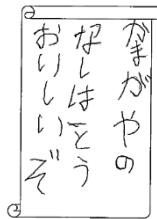 かまがやの
なしはとう
おいしいぞ